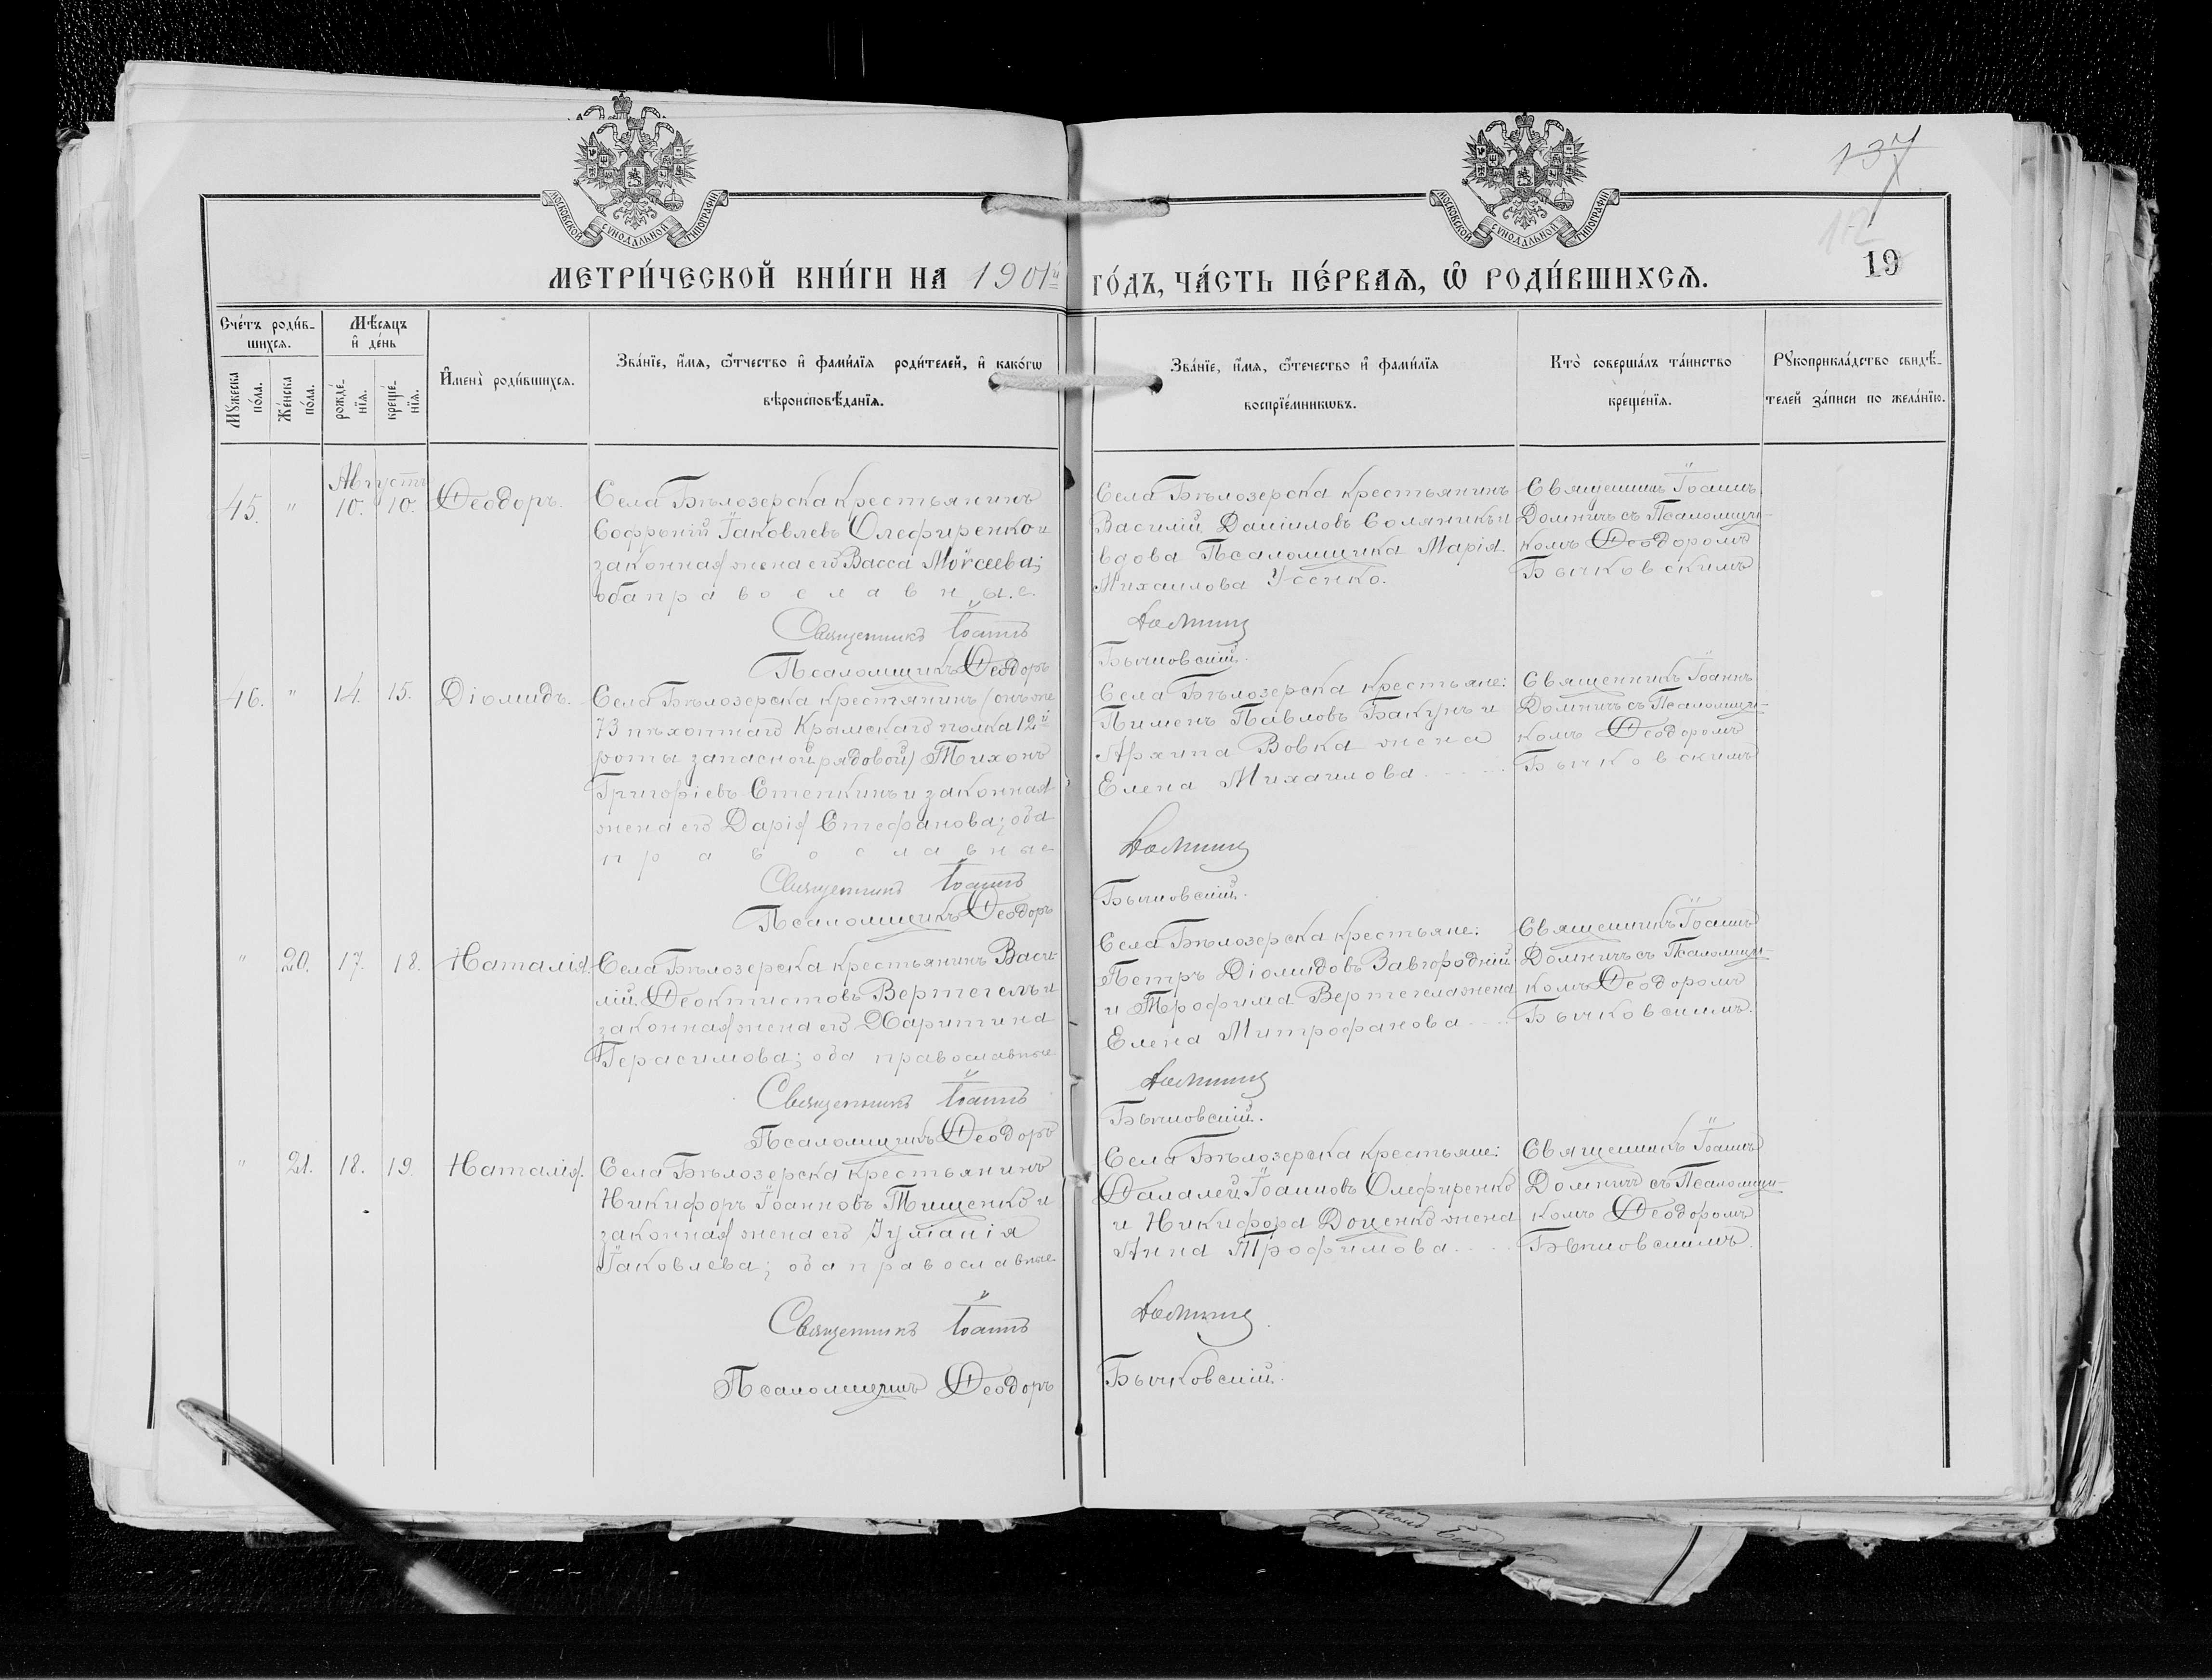 МОСКОВСКОЙ СѴНОДАЛЬНОЙ ТИПОГРАФІИ
МОСКОВСКОЙ СѴНОДАЛЬНОЙ ТИПОГРАФІИ
137
112
19
МЕТРИ́ЧЕСКОЙ КНИ́ГИ НА 1901й ГО́ДЪ, ЧА́СТЬ ПЕ́РВАѦ, Ѡ РОДИ́ВШИХСѦ.
Сче́тъ роди́в-
шихсѧ.
Мꙋжеска по́ла.
Же́нска по́ла.
Мѣ́сѧцъ
и҆ де́нь
рожде́-
нїѧ.
креще́-
нїѧ.
И҆мена̀ роди́вшихсѧ.
Зва́нїе, и҆́мѧ, ѻ҆́тчество и҆ фами́лїѧ роди́телей, и҆ како́гѡ
вѣроисповѣ́данїѧ.
Зва́нїе, и҆́мѧ, ѻ҆те́чество и҆ фами́лїѧ
воспрїе́мникѡвъ.
Кто̀ соверша́лъ та́инство
креще́нїѧ.
Рꙋкоприкла́дство свидѣ́-
телей за́писи по жела́нїю.
Августъ
45. " 10. 10. Ѳеодоръ.
Села Бѣлозерска крестьянинъ
Софроній Іаковлевъ Олефиренко и
законная жена его Васса Моѵсеева;
оба православные.
Священникъ Іоаннъ
Псаломщикъ Ѳеодоръ
Села Бѣлозерска крестьянинъ
Василій Даніиловъ Соляникъ и
вдова Псаломщика Марія
Михаилова Усенко.
Домничъ
Бычковскій.
Священникъ Іоаннъ
Домничъ съ Псаломщи-
комъ Ѳеодоромъ
Бычковскимъ
46. " 14. 15. Діомидъ.
Села Бѣлозерска крестянинъ (онъ же
73 пѣхотнаго Крымскаго полка 12й
роты запасной рядовой) Тихонъ
Григоріевъ Степкинъ и законная
жена его Дарія Стефанова; оба
православные
Священникъ Іоаннъ
Псаломщикъ Ѳеодоръ
Села Бѣлозерска крестьяне:
Пименъ Павловъ Бакунъ и
Архипа Вовка жена
Елена Михаилова
Домничъ
Бычковскій.
Священникъ Іоаннъ
Домничъ съ Псаломщи-
комъ Ѳеодоромъ
Бычковскимъ
" 20. 17. 18. Наталія.
Села Бѣлозерска крестьянинъ Васи-
лій Ѳеоктистовъ Вертегелъ и
законная жена его Харитина
Герасимова; оба православные
Священникъ Іоаннъ
Псаломщикъ Ѳеодоръ
Села Бѣлозерска крестьяне:
Петръ Діомидовъ Завгородній
и Трофима Вертегела жена
Елена Митрофанова
Домничъ
Бычковскій.
Священникъ Іоаннъ
Домничъ съ Псаломщи-
комъ Ѳеодоромъ
Бычковскимъ.
" 21. 18. 19. Наталія.
Села Бѣлозерска крестьянинъ
Никифоръ Іоанновъ Тищенко и
законная жена его Іуліанія
Іаковлева; оба православные
Священникъ Іоаннъ
Псаломщикъ Ѳеодоръ
Села Бѣлозерска крестьяне:
Ѳалалей Іоанновъ Олефиренко
и Никифора Доценко жена
Анна Трофимова
Домничъ
Бычковскій.
Священникъ Іоаннъ
Домничъ съ Псаломщи-
комъ Ѳеодоромъ
Бычковскимъ.